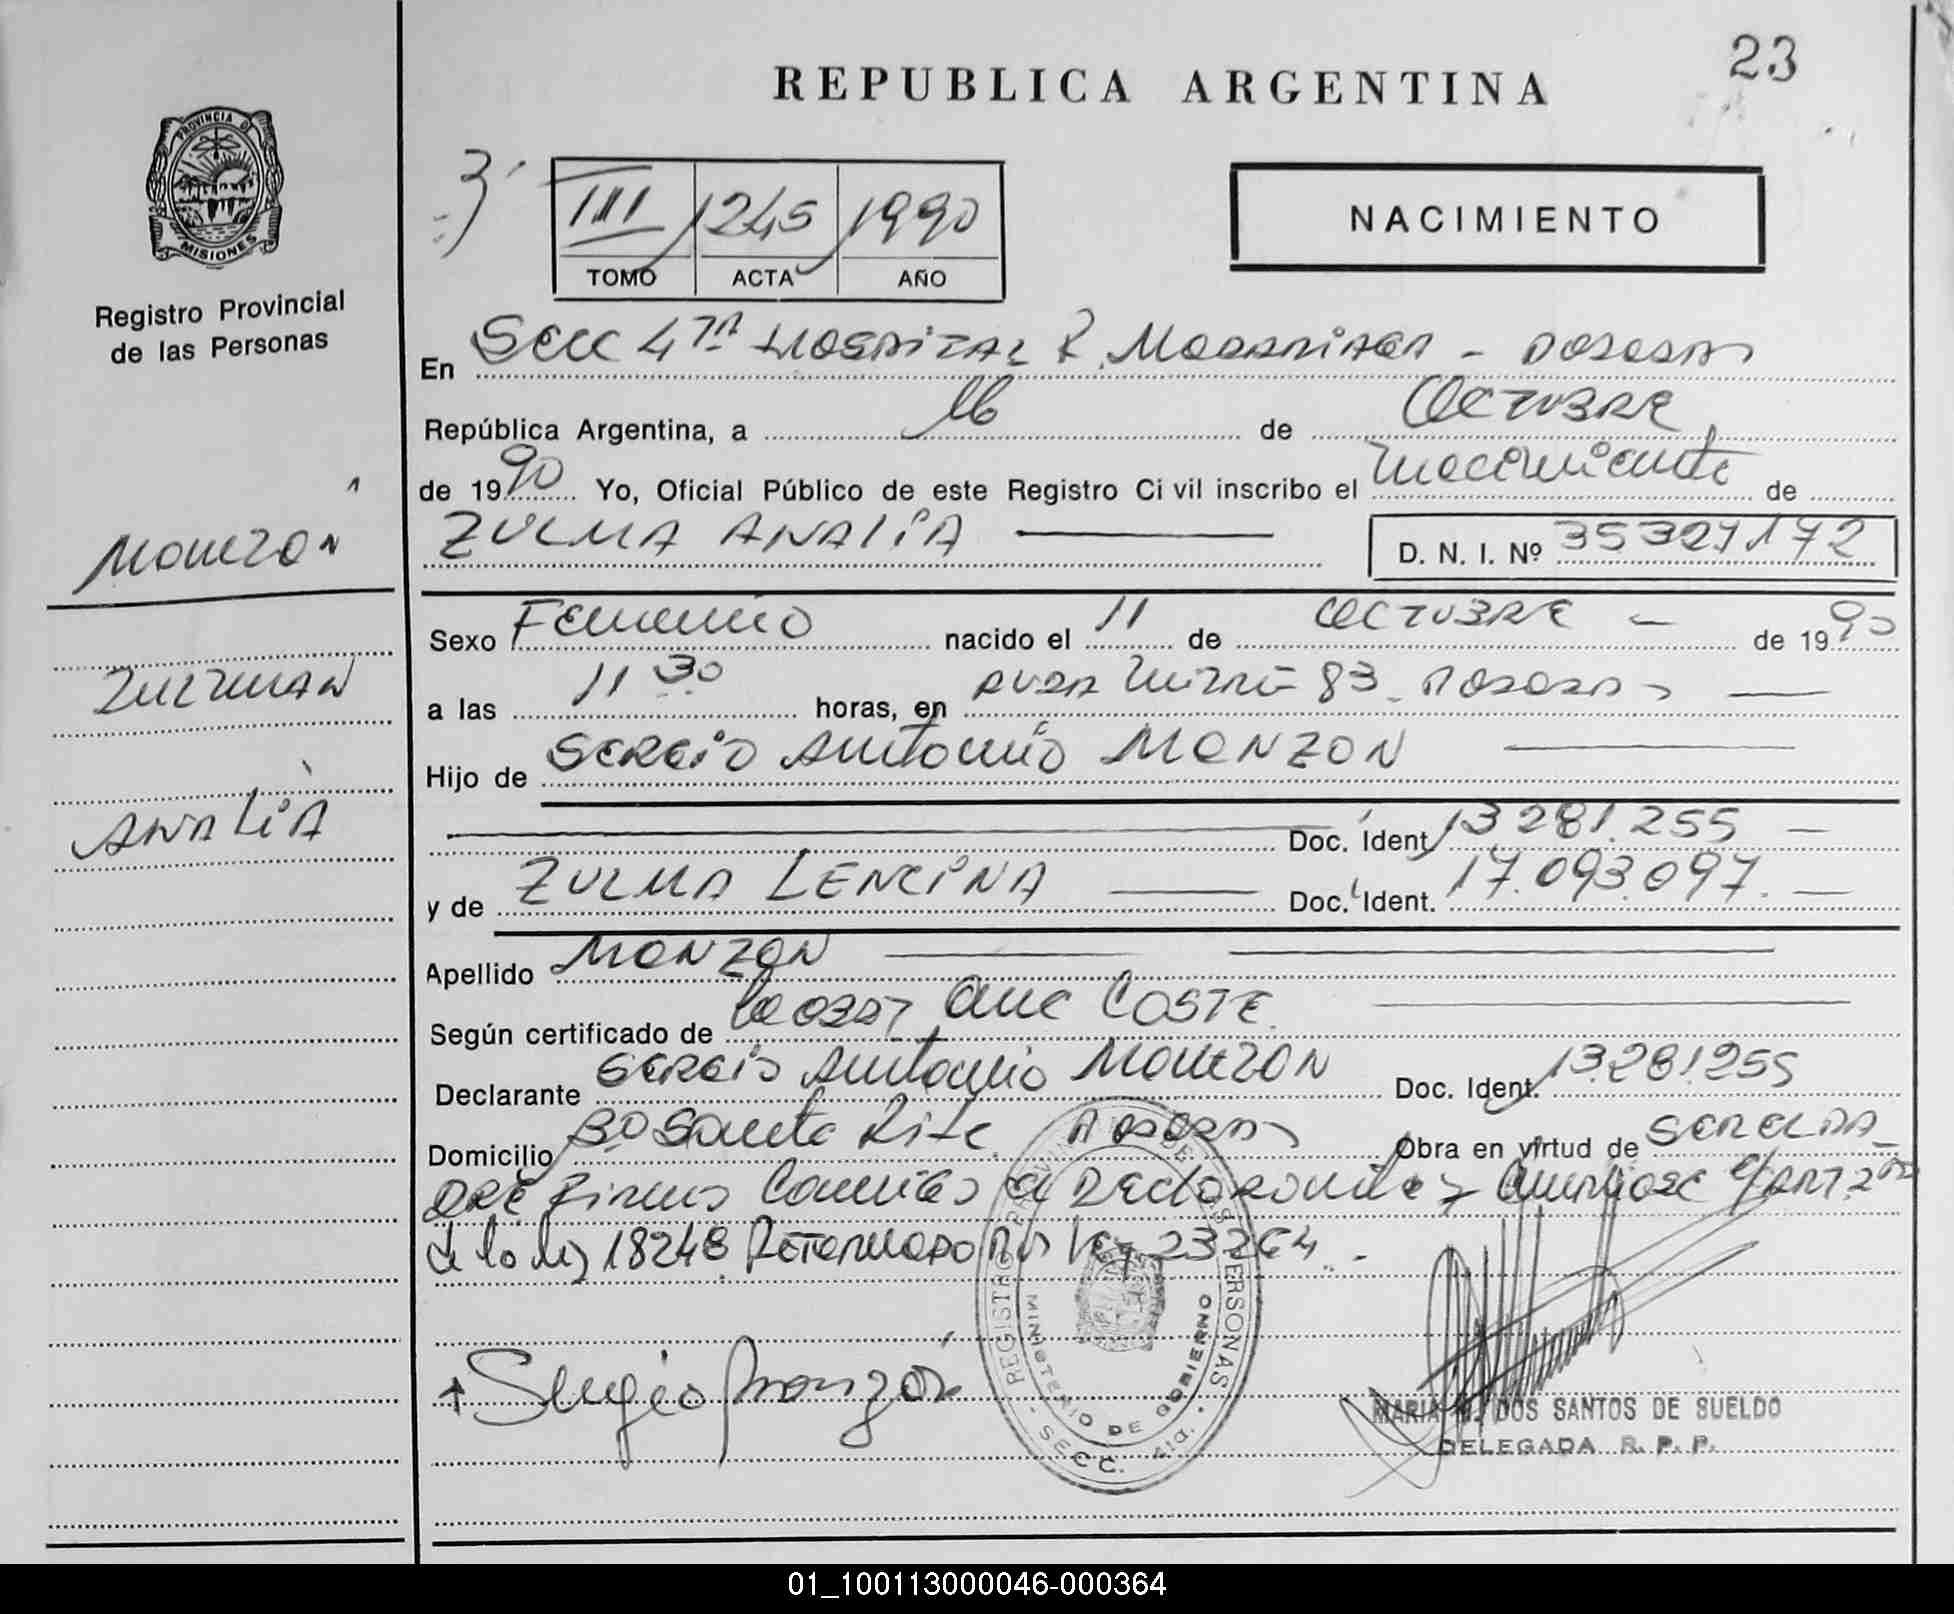 23
REPUBLICA ARGENTINA
PROVINCIA DE
MISIONES
Registro Provincial
de las Personas
III 1245 1990
TOMO ACTA AÑO
NACIMIENTO
En Secc 4ta Hospital R. Madariaga - Posadas
República Argentina, a 16 de Octubre
de 1990 Yo, Oficial Público de este Registro Civil inscribo el nacimiento de
ZULMA ANALIA D. N. I. Nº 35327172
MONZON
Sexo Femenino nacido el 11 de OCTUBRE de 1990
ZULMA
a las 11 30 horas, en AVDA Mitre 83 Posadas
Hijo de SERGIO Antonio MONZON
ANALIA
Doc. Ident 13 281.255
y de ZULMA LENCINA Doc. Ident. 17.093.097.
Apellido MONZON
Según certificado de COSTE
Declarante SERGIO Antonio MONZON Doc. Ident. 13.281.255
Domicilio Bo Santa Rita Posadas Obra en virtud de
de la ley 18248 Reformado por Ley 23264.
REGISTRO PROVINCIAL DE LAS PERSONAS
MINISTERIO DE GOBIERNO
SECC. 4ta.
Sergio Monzón
MARIA DOS SANTOS DE SUELDO
DELEGADA R. P. P.
01_100113000046-000364